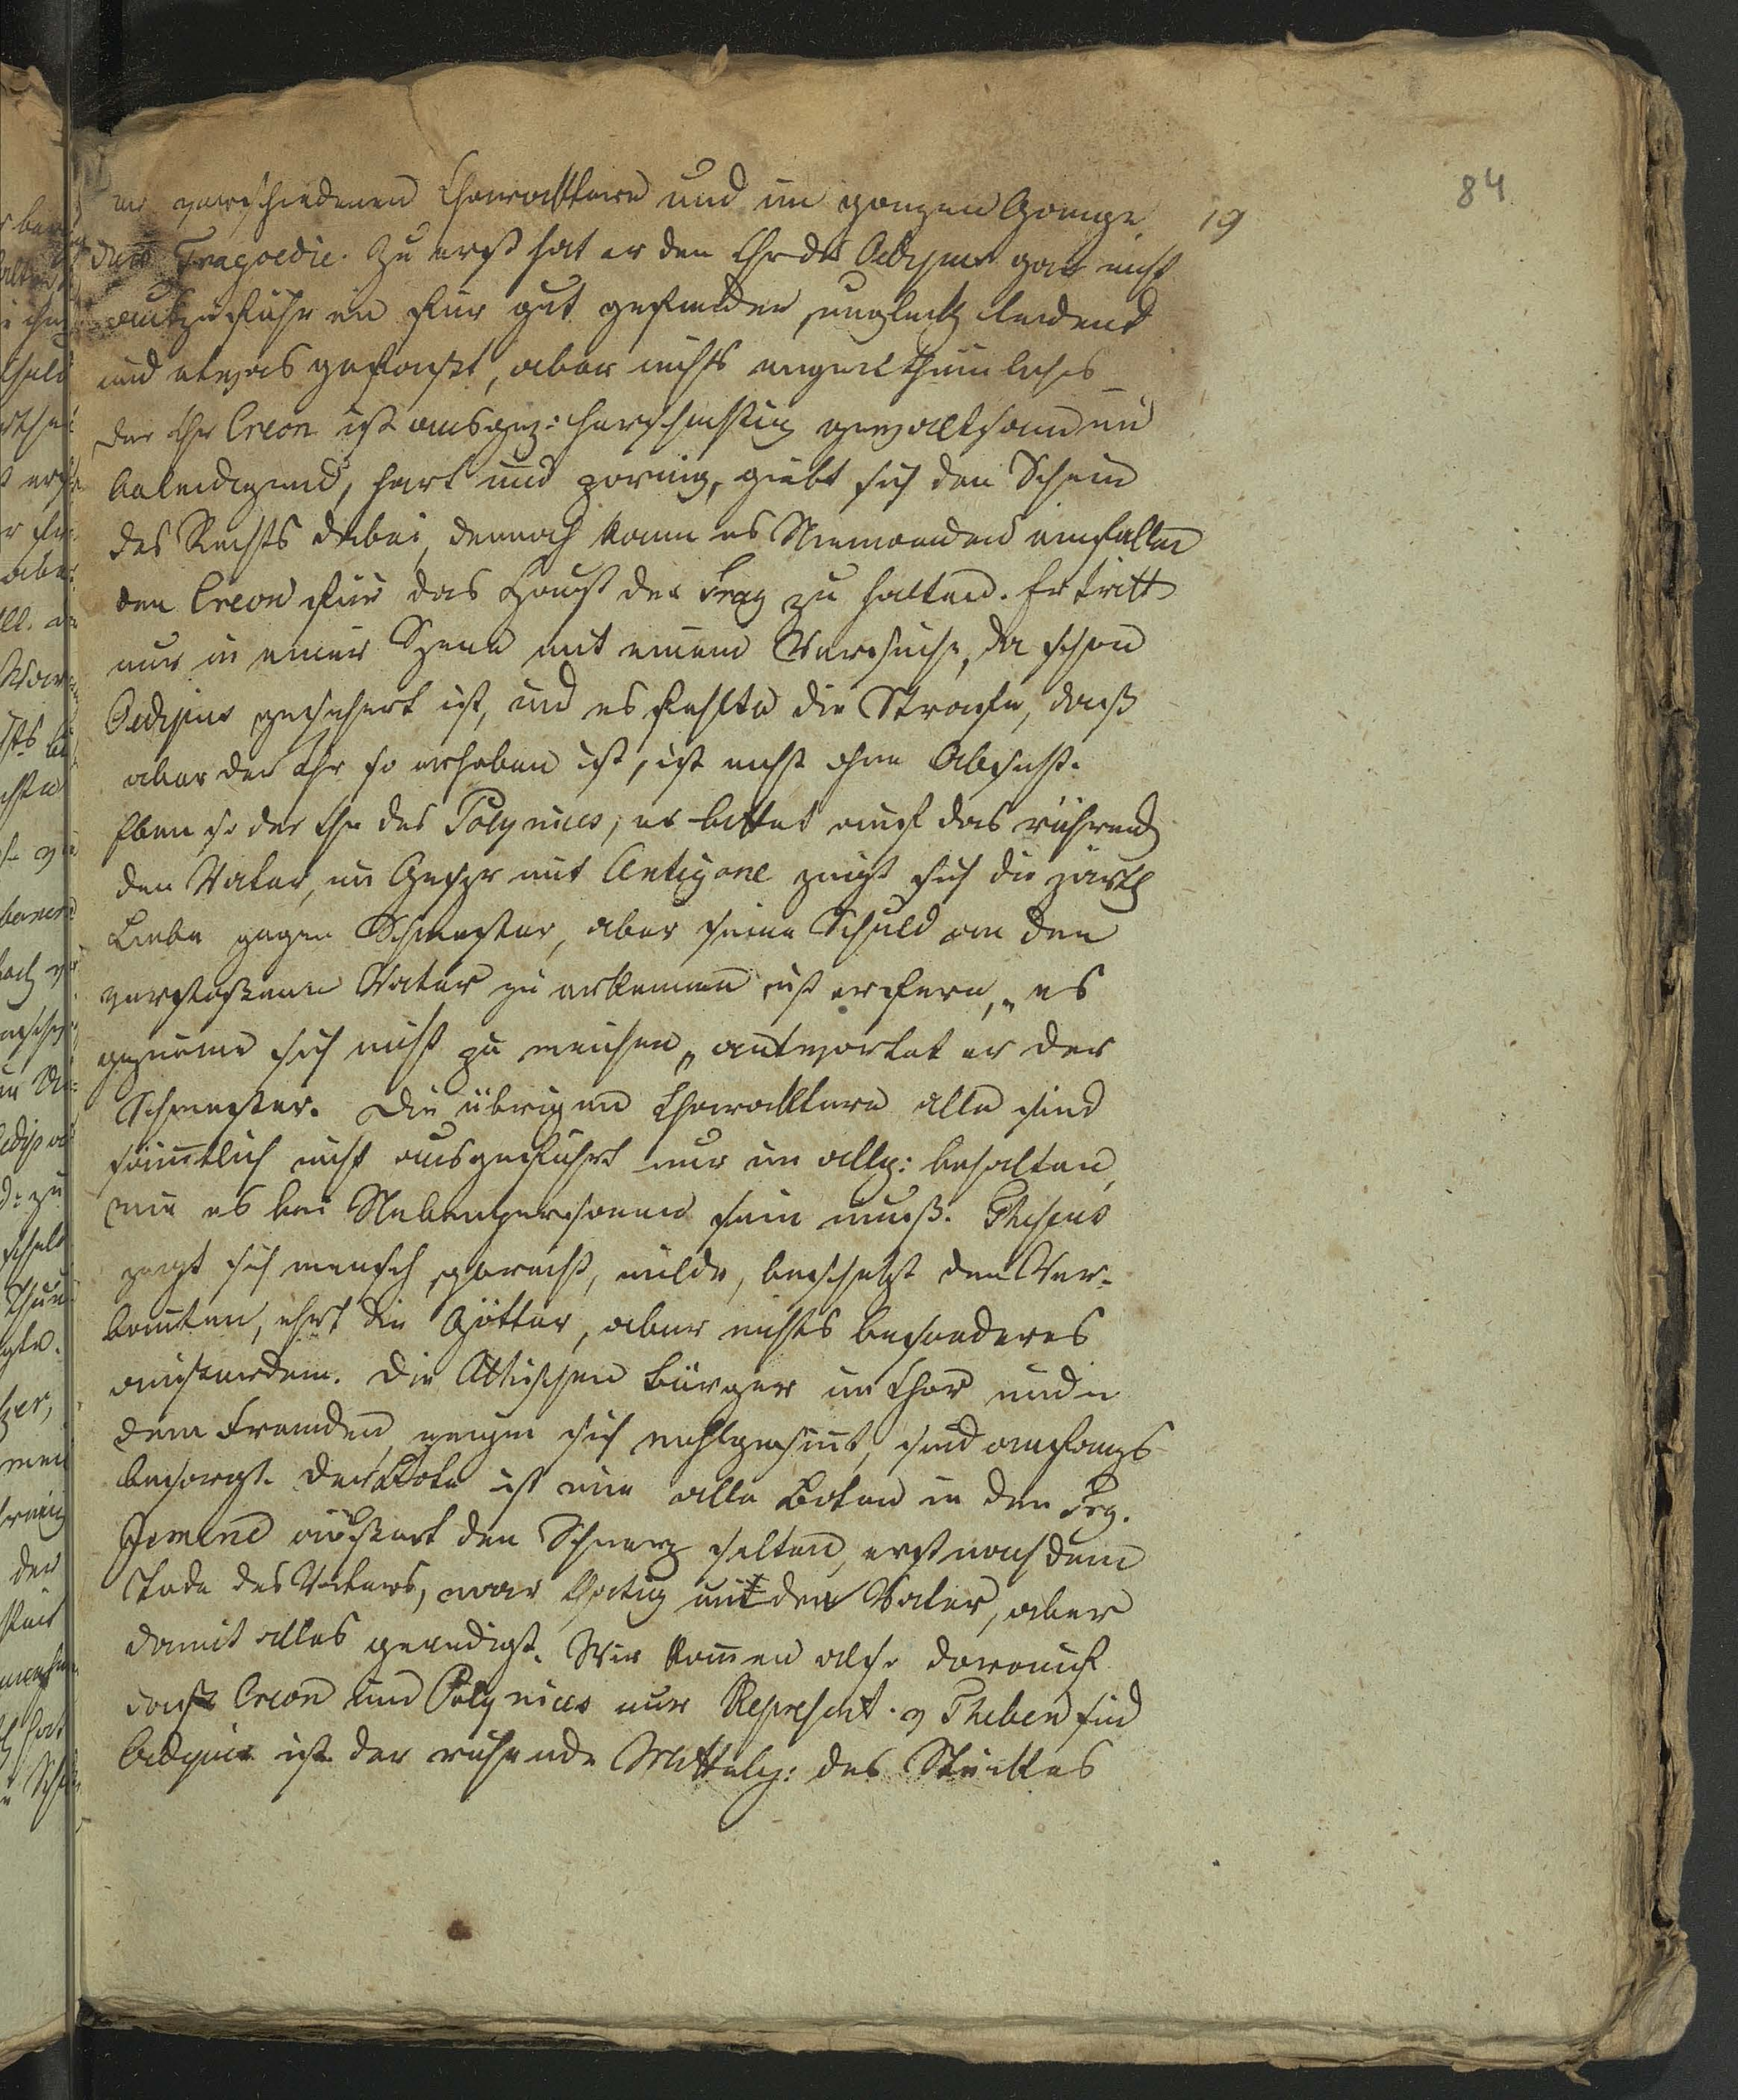 84
19
verschiedenen Characktere und im ganzen Gange
der Tragoedie. Zu erst hat er den Chr des Oedipus gar nicht
auszuführen für gut gefunden, ungluckl leidend
und etwas gefasst, aber nichts eigenthümliches
der Chr Creon ist ausgez: herrschsüchtig gewaltsam und
beleidigend, hart und zornig, giebt sich den Schein
des Rechts dabei, dennoch kann es Niemanden einfallen
den Creon für das Haupt der Trag zu halten. Er tritt
nur in einer Szene mit einem Versuche, da schon
Oedipus gesichert ist, und es fehlte die Strafe, dass
aber der Chr so erhoben ist, ist nicht ohne Absicht.
Eben so der Chr des Polynices, er bittet auf das rührend
den Vater, im Gespr mit Antigone zeigt sich die zärtl
Liebe gegen Schwester, aber seine Schuld an den
verstossenen Vater zu erkennen ist er fern, „es
gezieme sich nicht zu weichen„ antwortet er der
Schwester. Die übrigen Characktere alle sind
sämtlich nicht ausgeführt nur im allg: behalten,
wie es bei Nebenpersonen sein muss. Theseus
zeigt sich mensch gerecht, milde, beschützt den Ver-
banten, ehrt die Götter, aber nichts besonderes
ausserdem. Die Attischen Bürger im Chor und in
dem Fremden zeigen sich wohlgesint, sind anfangs
besorgt. Der Bote ist wie alle Boten in den Trg.
Ismene äussert den Schmerz selten, erst nach dem
Tode des Vaters, war thätig mit dem Vater, aber
damit alles geendigt. Wir kommen also darauf
dass Creon und Polynices nur Represent. v Theben sind
Oedipus ist der ruhende Mittelp: des Stückes